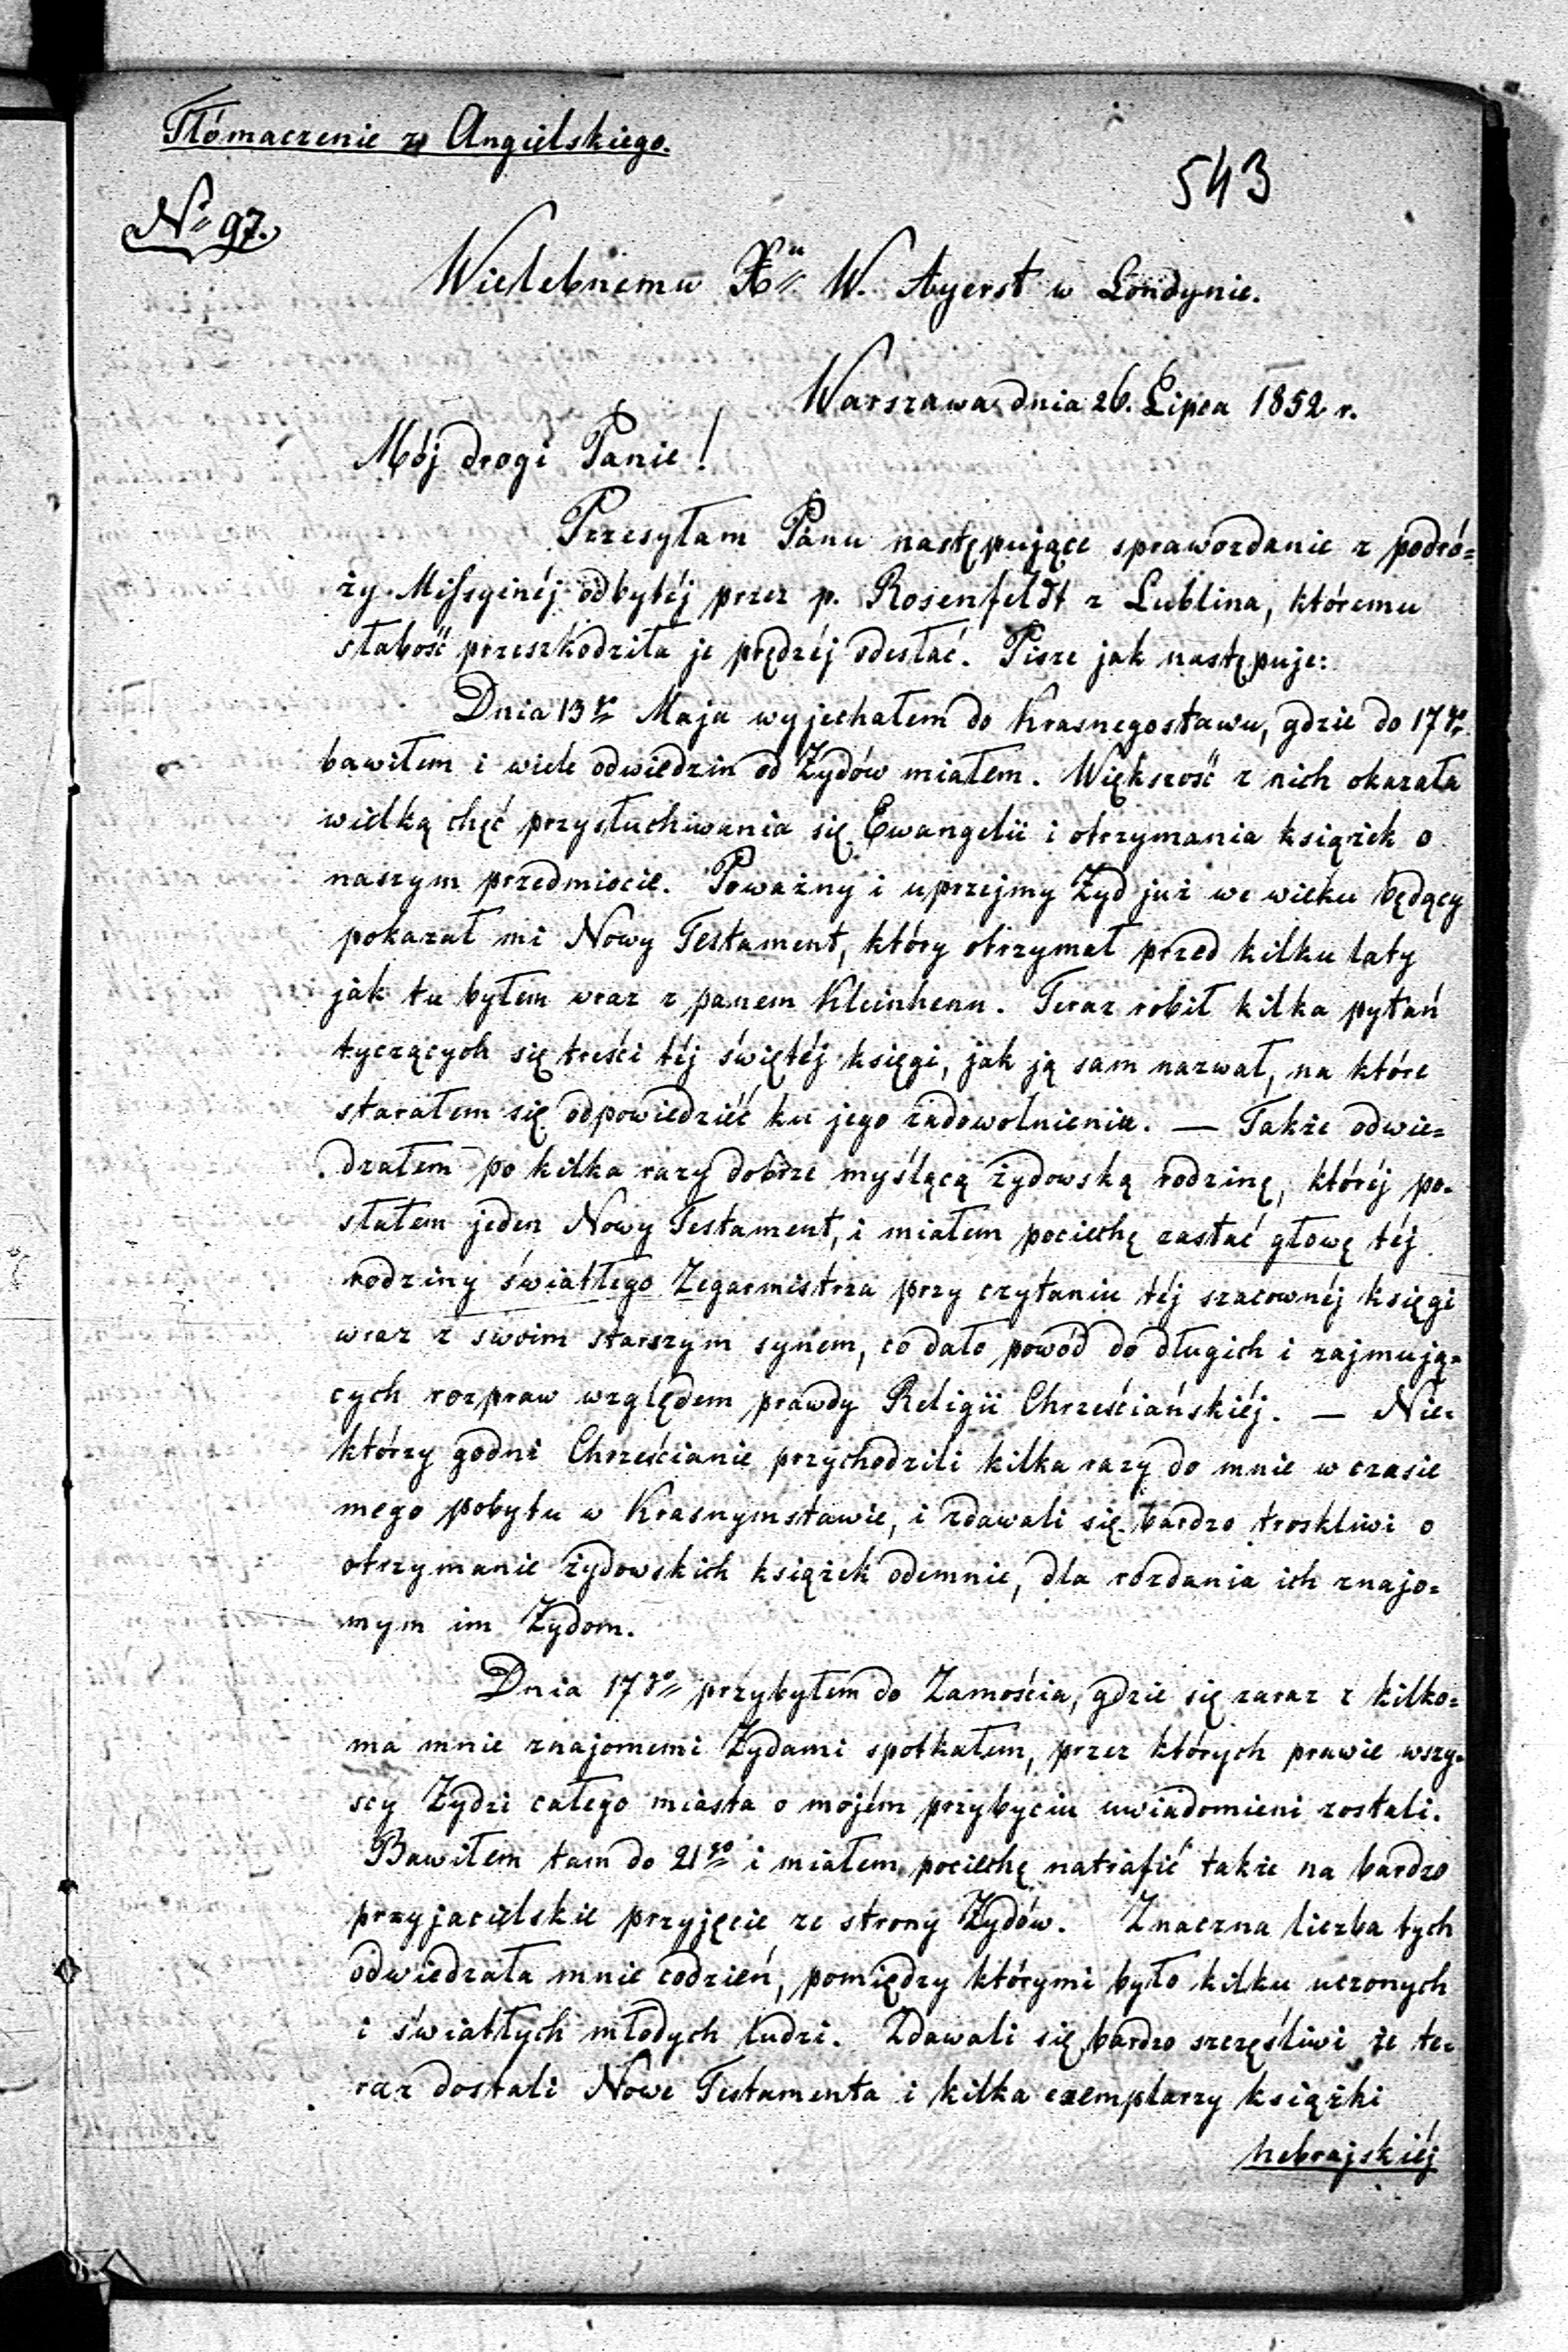 Tłómaczenie z Angielskiego.
543
Nº 97.
Wielebnemu Xu W. Ayerst w Londynie.
Warszawa dnia 26. Lipca 1852 r.
Mój drogi Panie!
Przesyłam Panu następujące sprawozdanie z podró=
ży Missyinéj odbytéj przez p. Rosenfeldt z Lublina, któremu
słabość przeszkodziła je prędzéj odesłać. Pisze jak następuje:
Dnia 13go Maja wyjechałem do Krasnegostawu, gdzie do 17go
bawiłem i wiele odwiedzin od Żydów miałem. Większość z nich okazała
wielką chęć przysłuchiwania się Ewangelii i otrzymania książek o
naszym przedmiocie. Poważny i uprzejmy Żyd już we wieku będący
pokazał mi Nowy Testament, który otrzymał przed kilku laty
jak tu byłem wraz z panem Kleinhenn. Teraz robił kilka pytań
tyczących się treści téj świętéj księgi, jak ją sam nazwał, na które
starałem się odpowiedzieć ku jego zadowolnieniu. — Także odwie=
dzałem po kilka razy dobrze myślącą żydowską rodzinę, któréj po=
słałem jeden Nowy Testament, i miałem pociechę zastać głowę téj
rodziny światłego Zegarmistrza przy czytaniu téj szacownéj księgi
wraz z swoim starszym synem, co dało powód do długich i zajmują=
cych rozpraw względem prawdy Religii Chrześciańskiéj. — Nie=
którzy godni Chrześcianie przychodzili kilka razy do mnie w czasie
mego pobytu w Krasnymstawie, i zdawali się bardzo troskliwi o
otrzymanie żydowskich książek odemnie, dla rozdania ich znajo=
mym im Żydom.
Dnia 17go przybyłem do Zamościa, gdzie się zaraz z kilko=
ma mnie znajomemi Żydami spotkałem, przez których prawie wszy=
scy Żydzi całego miasta o mojém przybyciu uwiadomieni zostali.
Bawiłem tam do 21go i miałem pociechę natrafić także na bardzo
przyjacielskie przyjęcie ze strony Żydów. Znaczna liczba tych
odwiedzała mnie codzień, pomiędzy którymi było kilku uczonych
i światłych młodych ludzi. Zdawali się bardzo szczęśliwi że te=
raz dostali Nowe Testamenta i kilka exemplarzy książki
hebrajskiéj